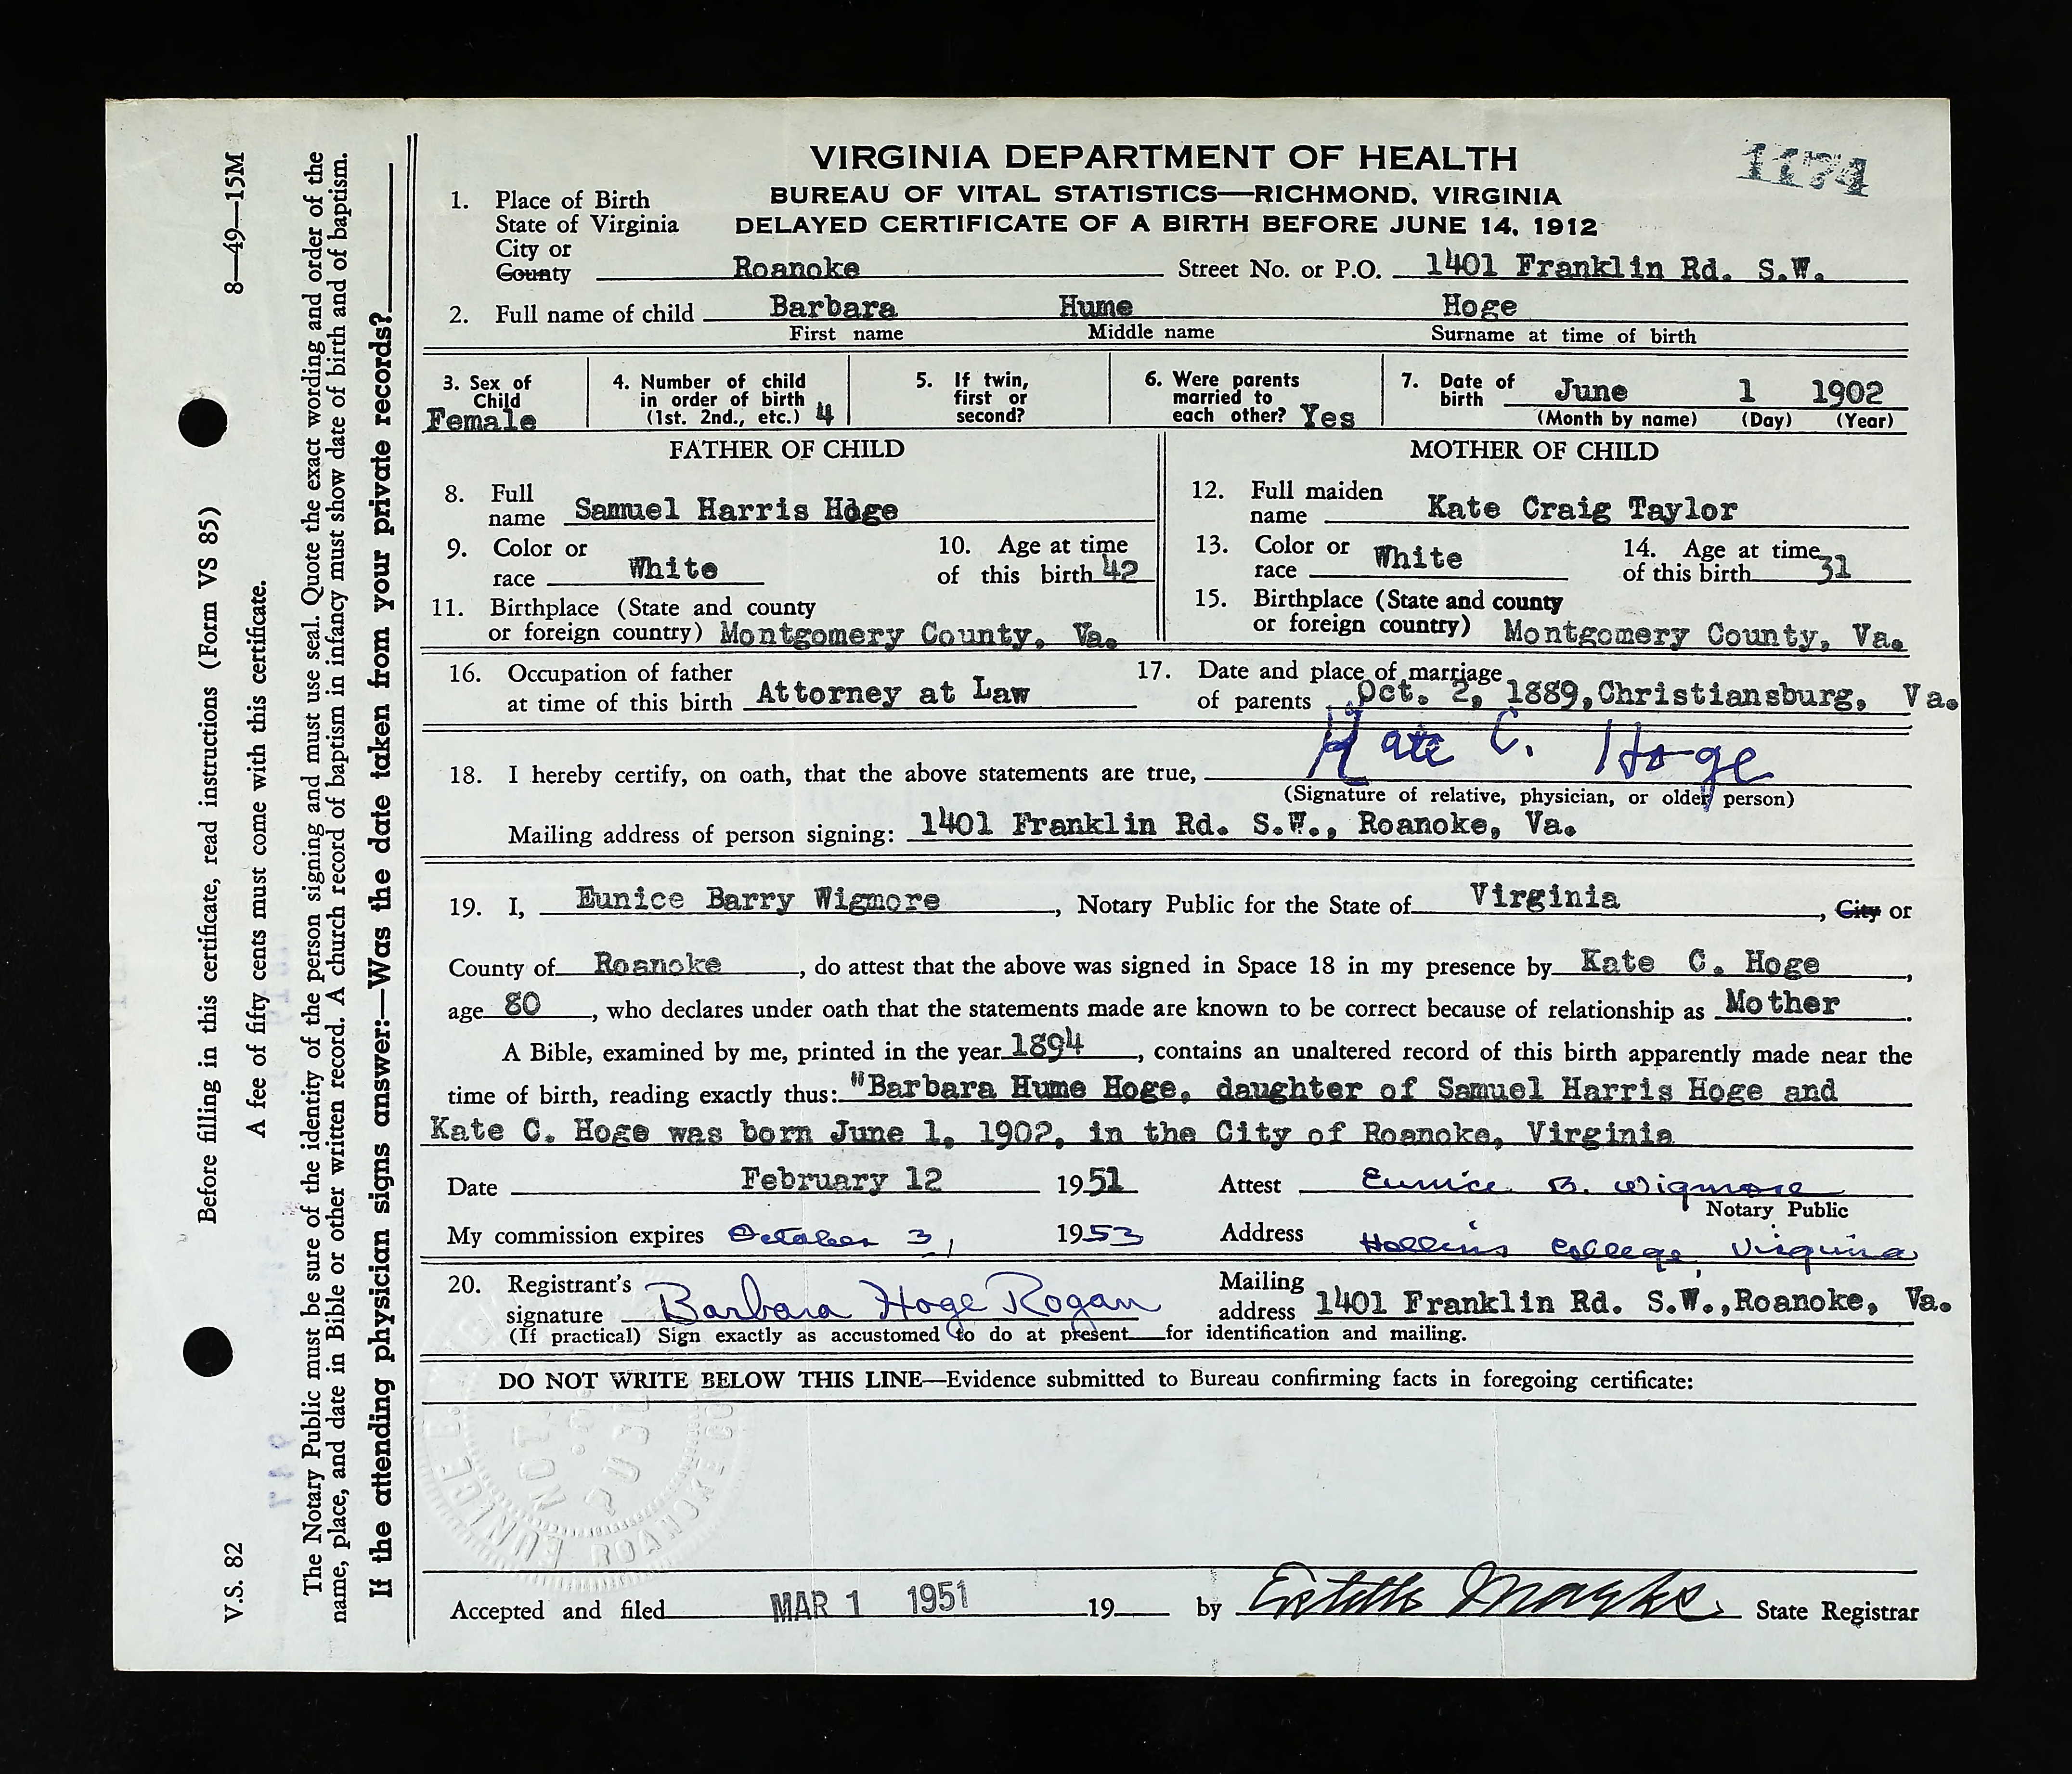 VIRGINIA DEPARTMENT OF HEALTH
1174
BUREAU OF VITAL STATISTICS—RICHMOND, VIRGINIA
DELAYED CERTIFICATE OF A BIRTH BEFORE JUNE 14, 1912
1. Place of Birth
State of Virginia
City or
County Roanoke Street No. or P.O. 1401 Franklin Rd. S.W.
2. Full name of child Barbara Hume Hoge
First name Middle name Surname at time of birth
3. Sex of Child Female
4. Number of child in order of birth (1st. 2nd., etc.) 4
5. If twin, first or second?
6. Were parents married to each other? Yes
7. Date of birth June 1 1902
(Month by name) (Day) (Year)
FATHER OF CHILD
8. Full name Samuel Harris Hoge
9. Color or race White
10. Age at time of this birth 42
11. Birthplace (State and county
or foreign country) Montgomery County, Va.
MOTHER OF CHILD
12. Full maiden name Kate Craig Taylor
13. Color or race White
14. Age at time of this birth 31
15. Birthplace (State and county
or foreign country) Montgomery County, Va.
16. Occupation of father
at time of this birth Attorney at Law
17. Date and place of marriage
of parents Oct. 2, 1889, Christiansburg, Va.
18. I hereby certify, on oath, that the above statements are true, Kate C. Hoge
(Signature of relative, physician, or older person)
Mailing address of person signing: 1401 Franklin Rd. S.W., Roanoke, Va.
19. I, Eunice Barry Wigmore, Notary Public for the State of Virginia, City or
County of Roanoke, do attest that the above was signed in Space 18 in my presence by Kate C. Hoge,
age 80, who declares under oath that the statements made are known to be correct because of relationship as Mother.
A Bible, examined by me, printed in the year 1894, contains an unaltered record of this birth apparently made near the
time of birth, reading exactly thus: "Barbara Hume Hoge, daughter of Samuel Harris Hoge and
Kate C. Hoge was born June 1, 1902, in the City of Roanoke, Virginia
Date February 12 1951 Attest Eunice B. Wigmore
Notary Public
My commission expires October 3, 1953 Address Hollins College, Virginia
20. Registrant's signature Barbara Hoge Rogan Mailing address 1401 Franklin Rd. S.W., Roanoke, Va.
(If practical) Sign exactly as accustomed to do at present—for identification and mailing.
DO NOT WRITE BELOW THIS LINE—Evidence submitted to Bureau confirming facts in foregoing certificate:
Accepted and filed MAR 1 1951 19 by Estelle Marks. State Registrar
V.S. 82 Before filling in this certificate, read instructions (Form VS 85) 8—49—15M
A fee of fifty cents must come with this certificate.
The Notary Public must be sure of the identity of the person signing and must use seal. Quote the exact wording and order of the
name, place, and date in Bible or other written record. A church record of baptism in infancy must show date of birth and of baptism.
If the attending physician signs answer:—Was the date taken from your private records?